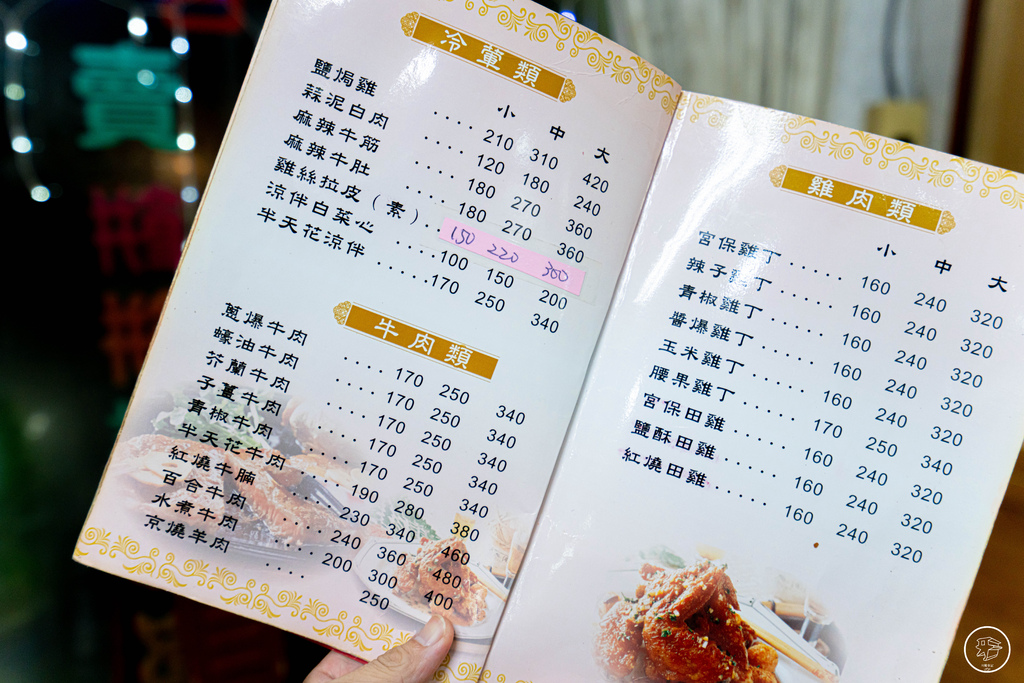 冷葷類
小 中 大
鹽焗雞 ····· 210 310 420
蒜泥白肉 ····· 120 180 240
麻辣牛筋 ····· 180 270 360
麻辣牛肚 ····· 180 270 360
雞絲拉皮(素) · 150 220 300
涼伴白菜心 ····· 100 150 200
半天花涼伴 ····· 170 250 340
牛肉類
蔥爆牛肉 ····· 170 250 340
蠔油牛肉 ····· 170 250 340
芥蘭牛肉 ····· 170 250 340
子薑牛肉 ····· 170 250 340
青椒牛肉 ····· 170 250 340
半天花牛肉 ···· 190 280 380
紅燒牛腩 ····· 230 340 460
百合牛肉 ····· 240 360 480
水煮牛肉 ····· 200 300 400
京燒羊肉 ····· 250
雞肉類
小 中 大
宮保雞丁 ······ 160 240 320
辣子雞丁 ······ 160 240 320
青椒雞丁 ······ 160 240 320
醬爆雞丁 ······ 160 240 320
玉米雞丁 ······ 160 240 320
腰果雞丁 ······ 170 250 340
宮保田雞 ······ 160 240 320
鹽酥田雞 ······ 160 240 320
紅燒田雞 ······ 160 240 320